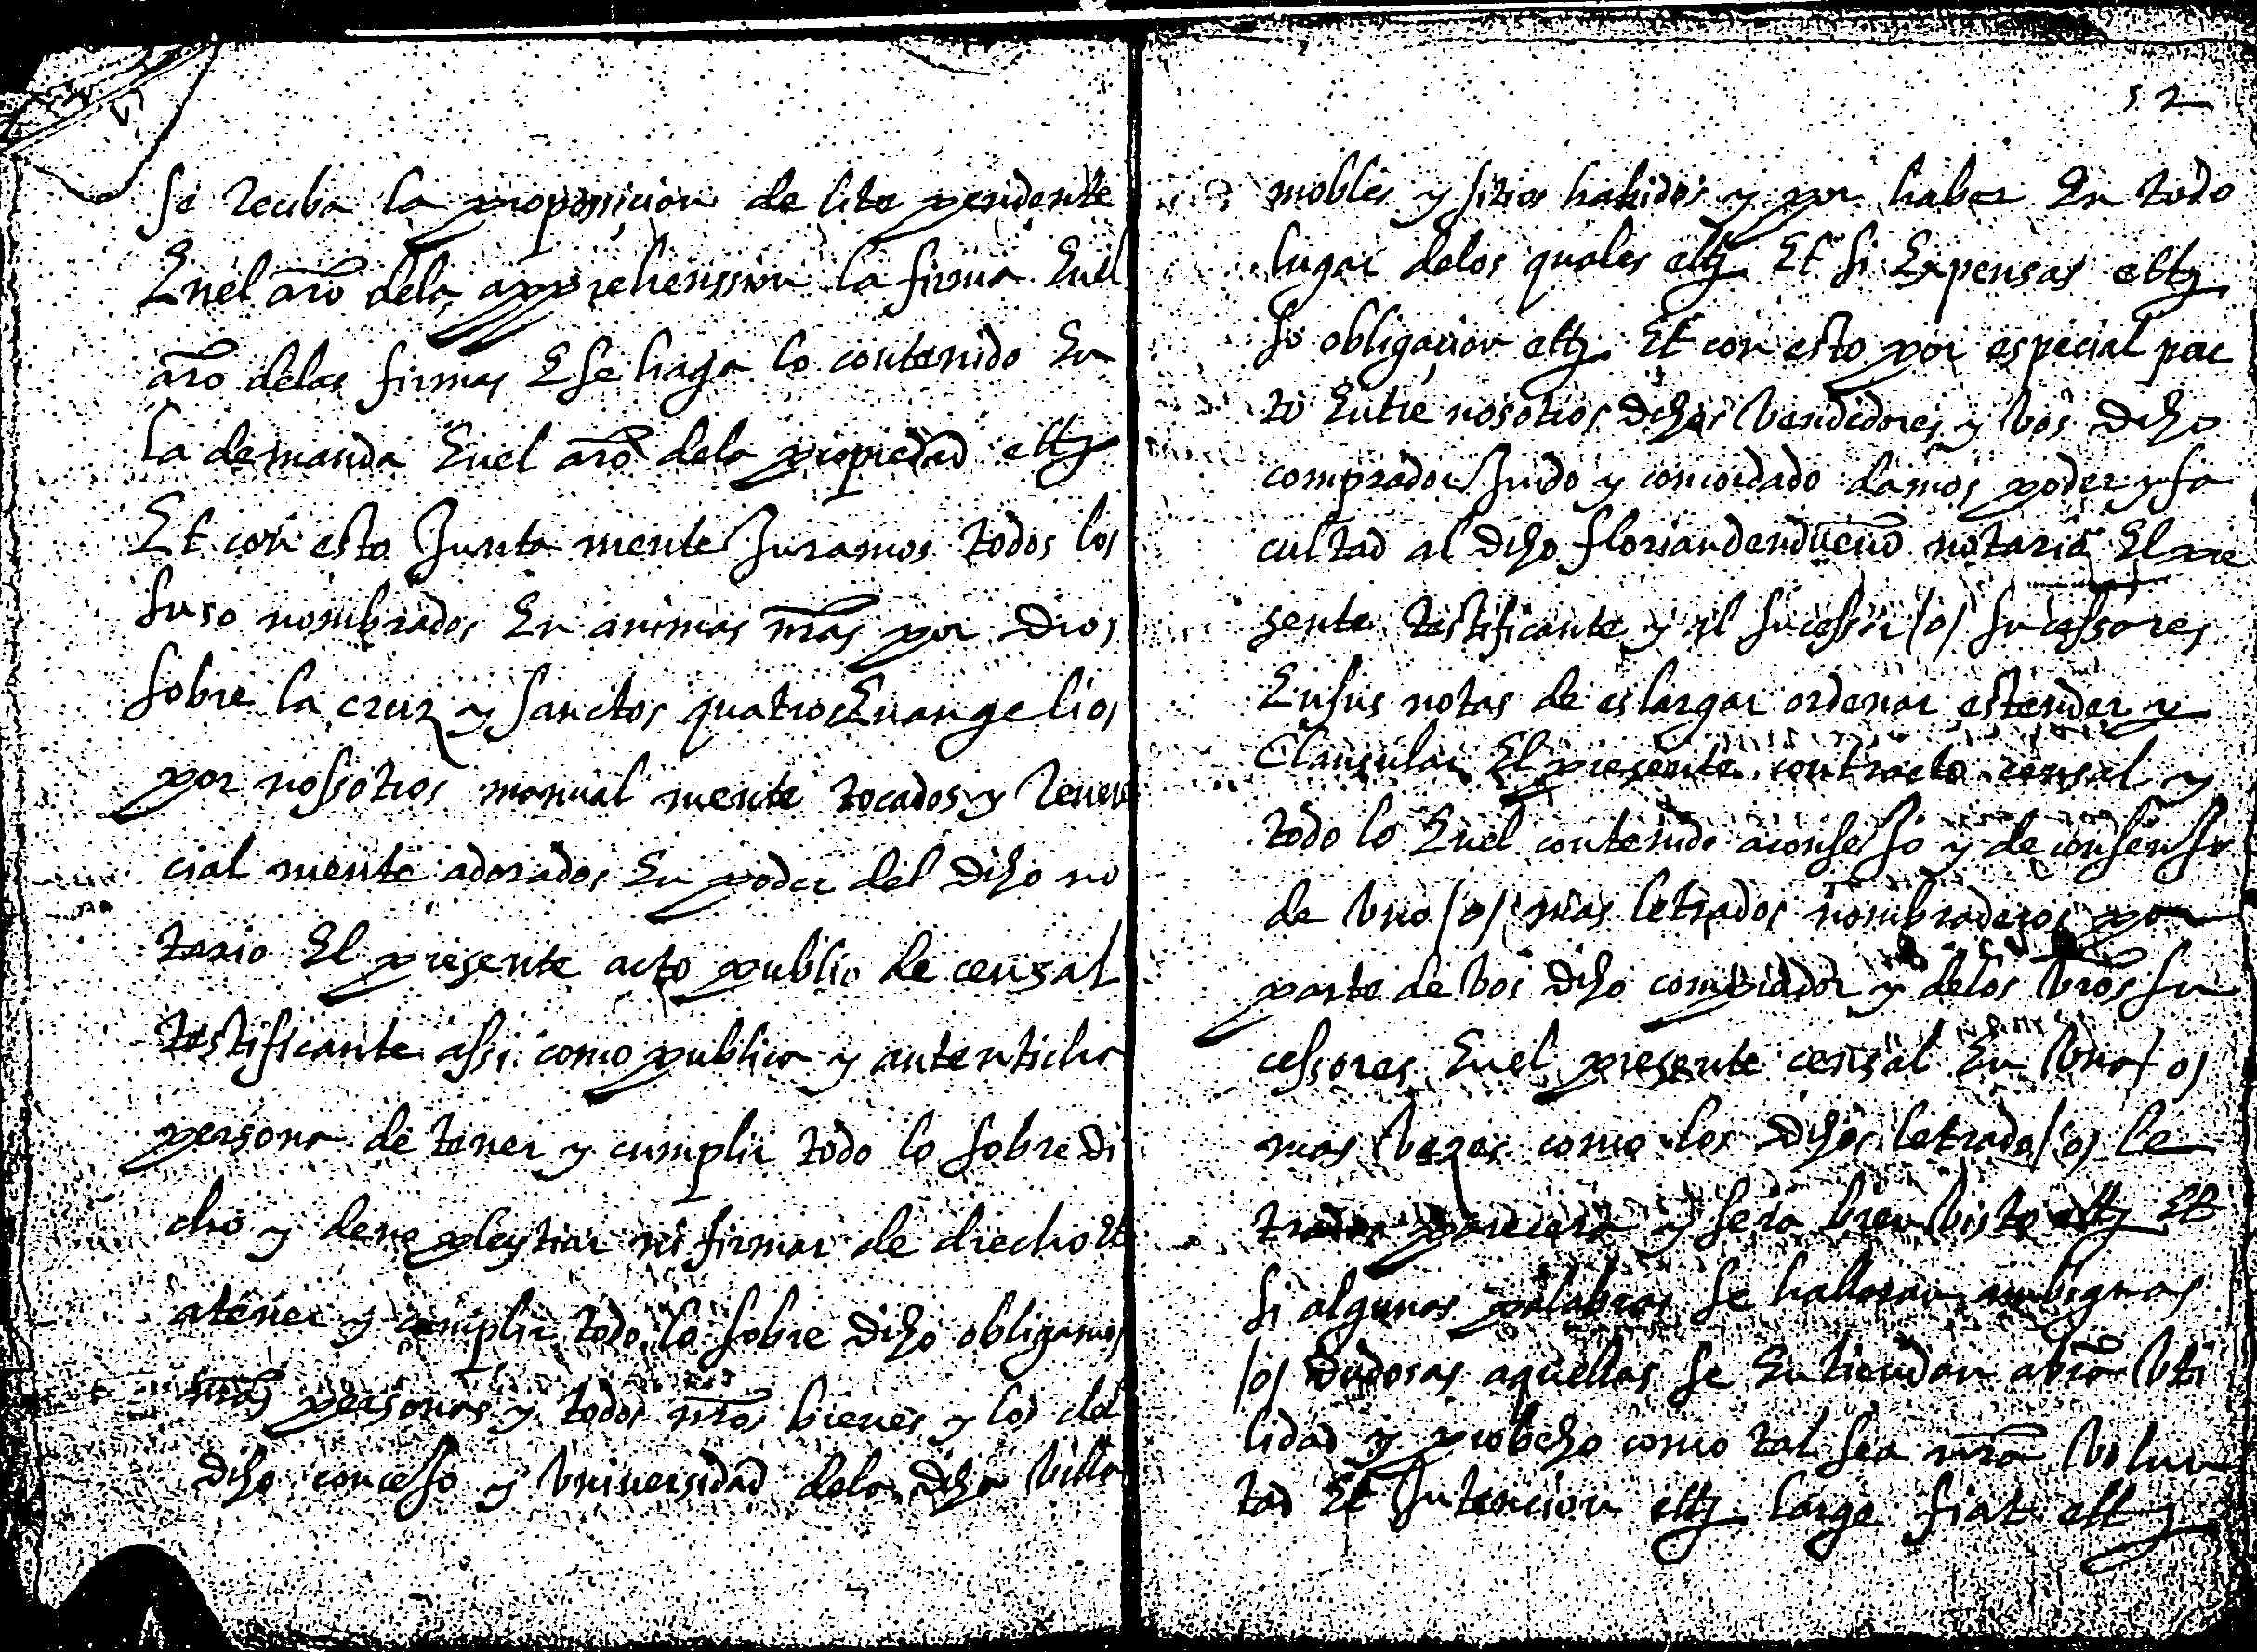 se reciba la proposicion de lite pendente
Enel aro dela apprehenssion la firma Enel
aro delas firmas E se haga lo contenido En
la demanda Enel aro dela propiedad ettz
Et con esto Junta mente Juramos todos los
suso nombrados En animas nras por dios
sobre la cruz y sanctos quatro Euangelios
por nossotros manual mente tocados y Reueren
cial mente adorados En poder del dicho no
tario El presente acto publico de censal
testificante assi como publica y autenticha
persona de tener y cumplir todo lo sobre di
cho y de no pleytiar ni firmar de drecho Et
atener y complir todo lo sobre dicho obligamos
nras personas y todos nros bienes y los del
dicho concejo y Vniuersidad dela dicha Villa
52
mobles y sitios habidos y por haber En todo
lugar delos quales ettz Et si Expensas ettz
so obligacion ettz Et con esto por especial pac
to Entre nosotros dichos Vendedores y Vos dicho
comprador Inido y concordado damos poder y fa
cultad al dicho florian notario El pre
sente testificante y al sucessor /o/ sucessores
En sus notas de eslargar ordenar estender y
Clausular El presente contracto censal y
todo lo Enel contenido aconsejo y de consenso
de Vno /o/ mas letrados nombraderos por
parte de Vos dicho comprador y delos Vros su
cessores Enel presente censal En Vna /o/
mas Vezes como los dichos letrado /o/ le
trados parecera y sera bien Visto ettz Et
si algunas palabras se hallaran ambiguas
/o/ dudosas aquellas se Entiendan a Vra Vti
lidad y probecho como tal sea nra Volun
tad Et Intencion ettz large fiat ettz